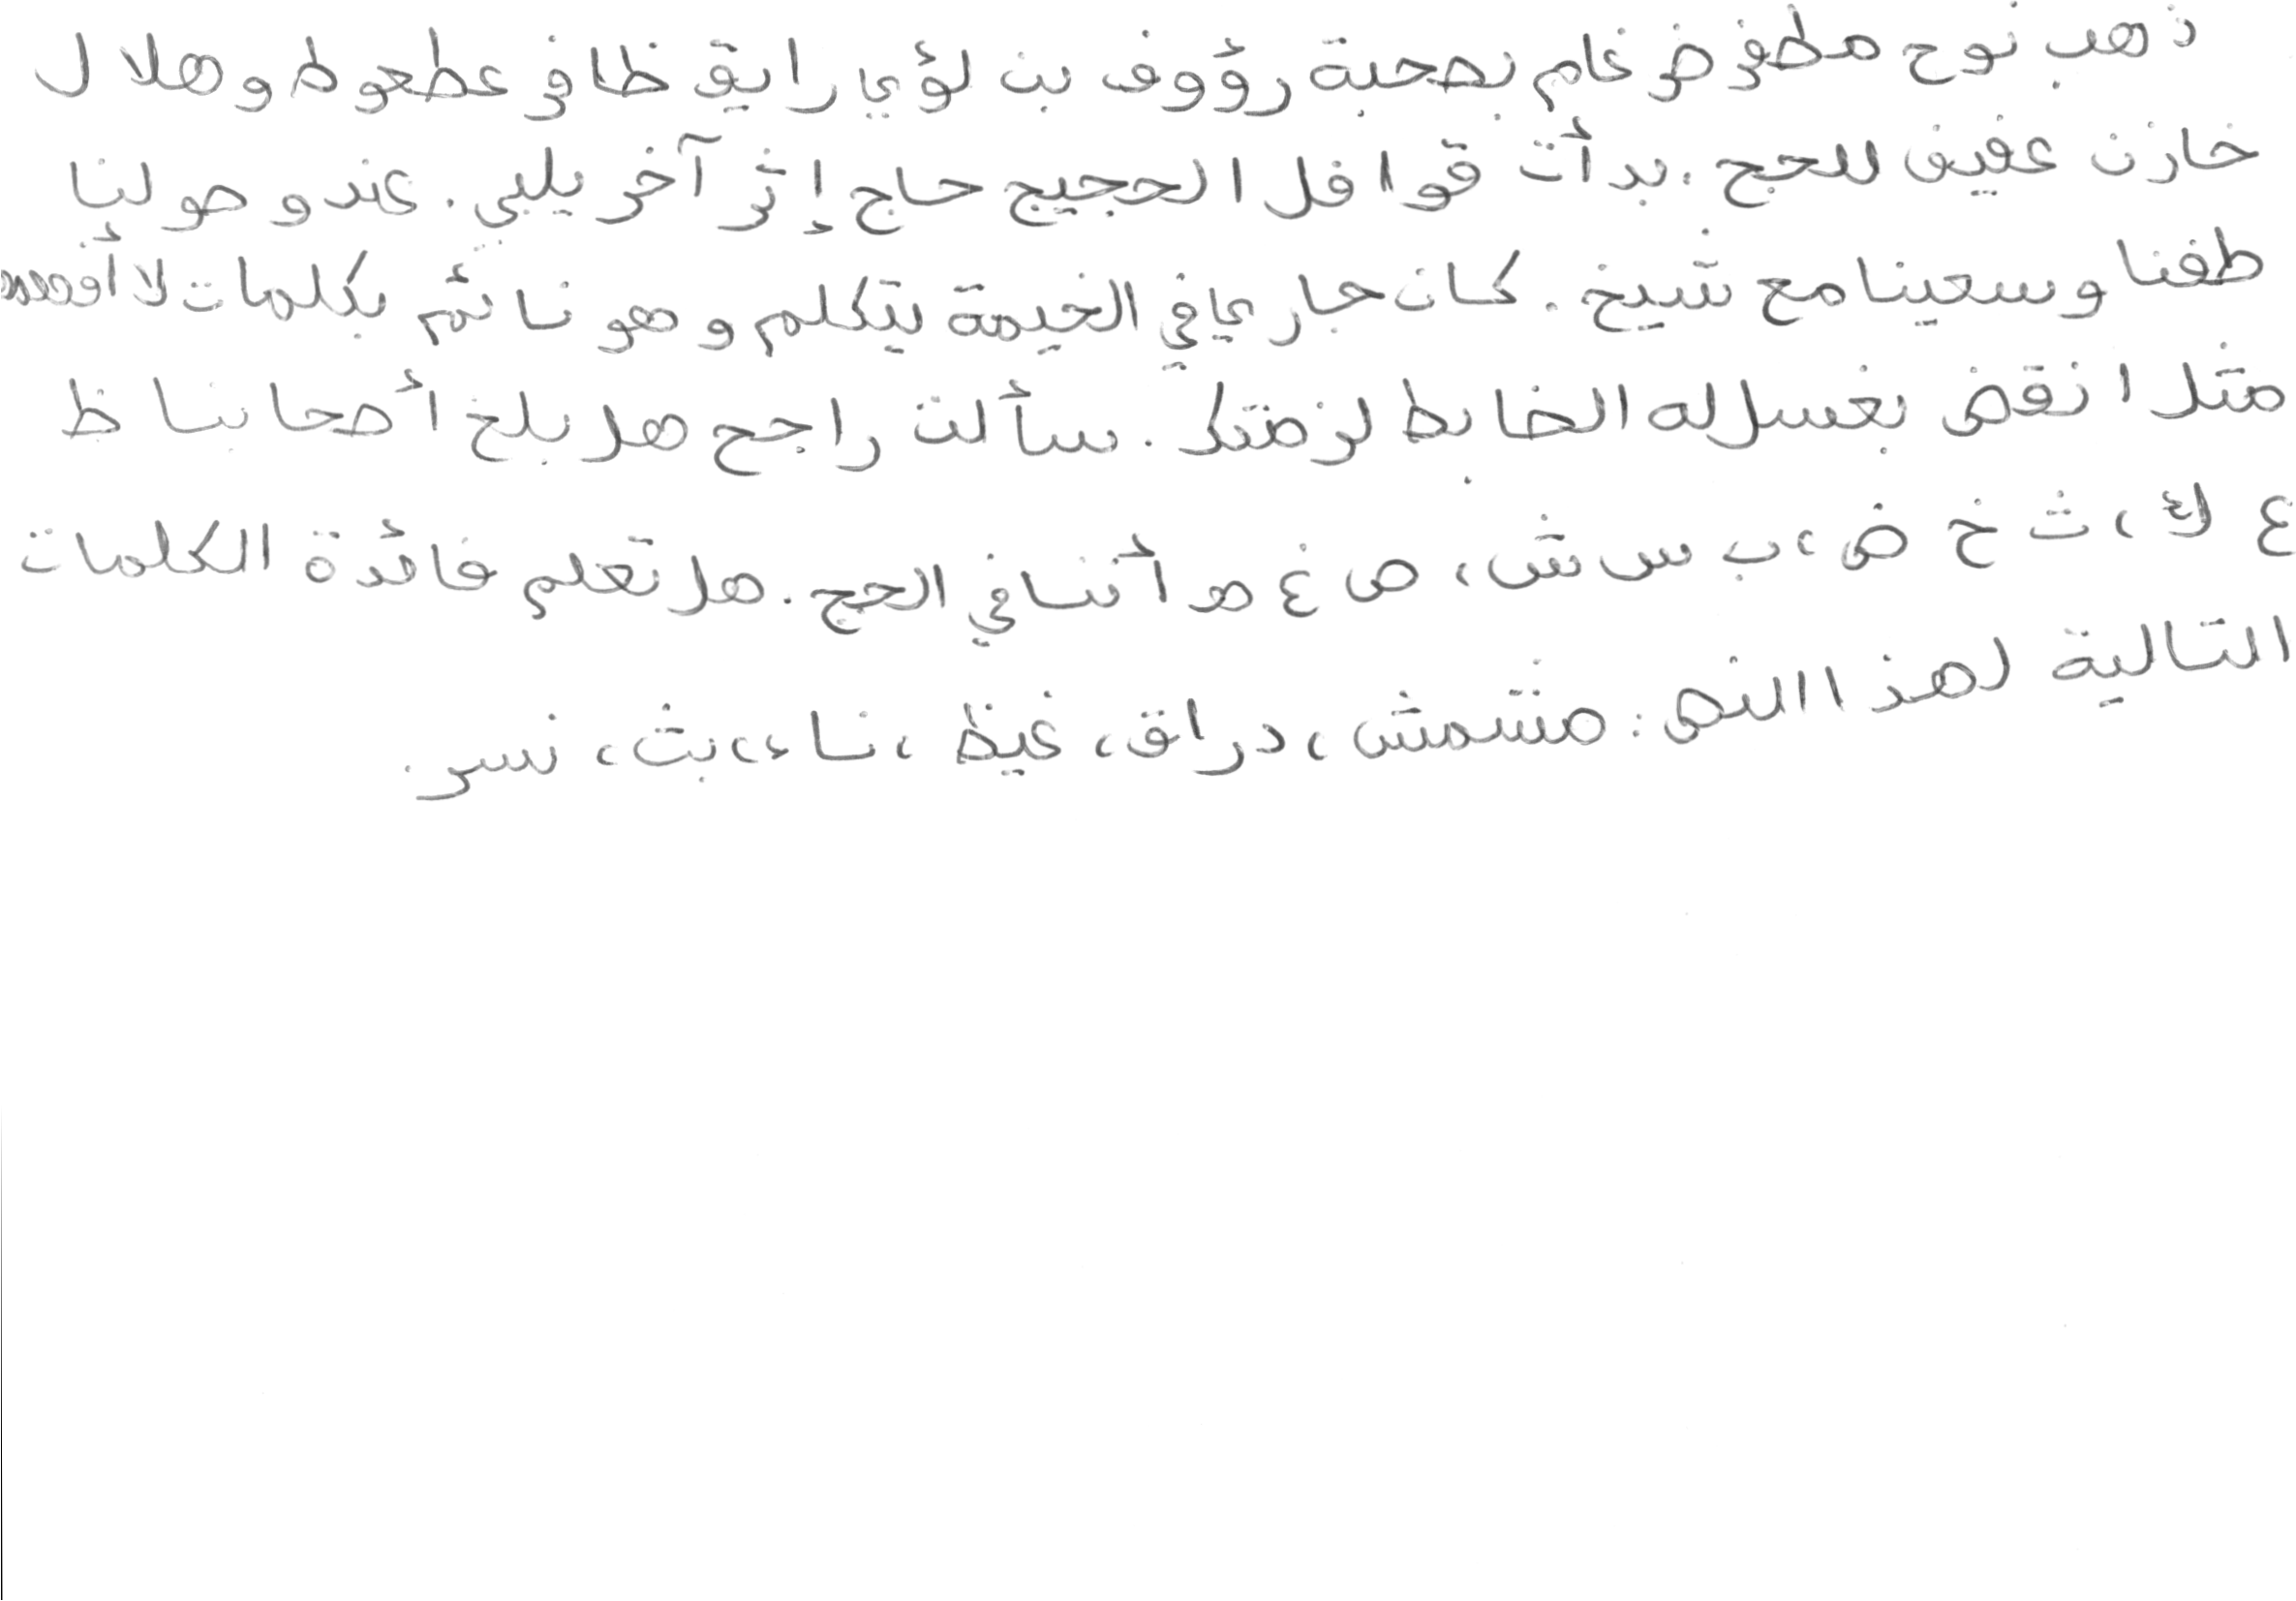 ذهب نوح مظفر ضرغام بصحبة رؤوف بن لؤي رايق ظافر عطعوط وهلال
خازن عفيف للحج. بدأت قوافل الحجيج حاج إثر آخر يلبي. عند وصولنا
طفنا وسعينا مع شيخ. كان جاري في الخيمة يتكلم وهو نائم بكلمات لا أفهمها
مثل انقض بغسل له الضابط لز ضتك. سألت راجح هل بلغ أصحابنا ظ
ع ك، ث خ ض، ب س ش، ص غ ه أثنا في الحج. هل تعلم فائدة الكلمات
التالية لهذا النص: مشمش، دراق، غيظ، ناء، بث، نسر.